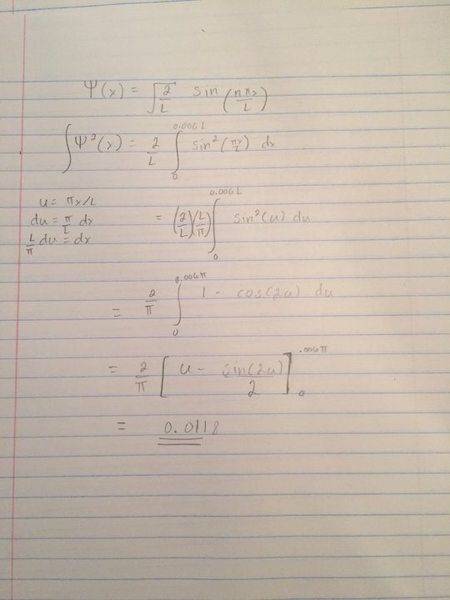 Ψ(x) = √(2/L) sin (nπx/L)
∫Ψ²(x) = 2/L ∫₀^0.006L sin² (πx/L) dx
u = πx/L
du = π/L dx
L/π du = dx
= (2/L)(L/π) ∫₀^0.006L sin²(u) du
= 2/π ∫₀^0.006π 1 - cos(2u) du
= 2/π [u - sin(2u)/2]₀^.006π
= 0.0112